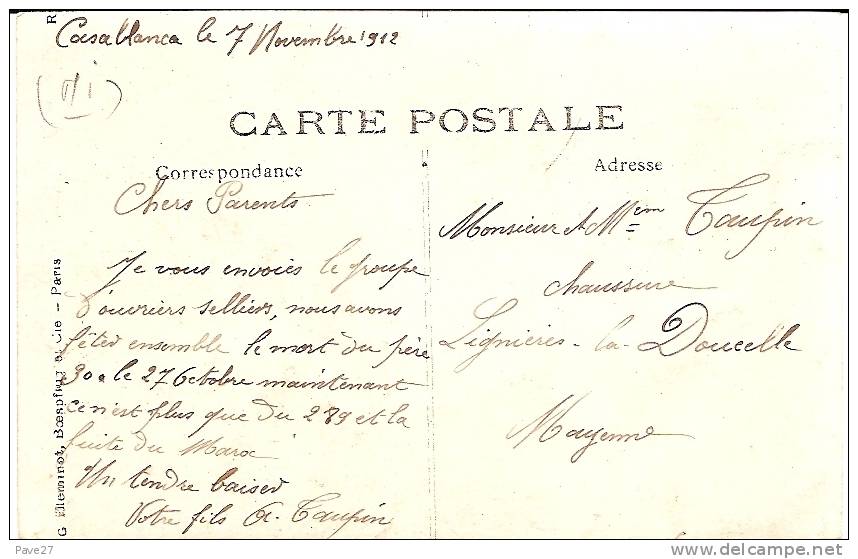 Casablanca le 7 Novembre 1912
CARTE POSTALE
Correspondance
Adresse
Chers Parents
Je vous envoies le groupe
d'ouvriers selliers, nous avons
fêter ensemble le mort du père
30. le 27 Octobre maintenant
ce n'est plus que du 289 et la
fuite du Maroc
Un tendre baiser
Votre fils A. Taupin
Monsieur et Mem Taupin
chaussure
Lignières-la-Doucelle
Mayenne
G Mleminot, Bœspflug et Cie - Paris
R
Pave27
http://www.delcampe.net